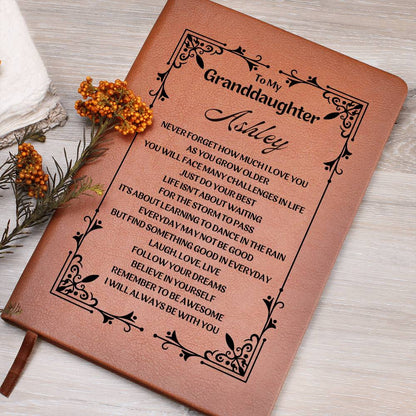 To My
Granddaughter
Ashley
NEVER FORGET HOW MUCH I LOVE YOU
AS YOU GROW OLDER
YOU WILL FACE MANY CHALLENGES IN LIFE
JUST DO YOUR BEST
LIFE ISN'T ABOUT WAITING
FOR THE STORM TO PASS
IT'S ABOUT LEARNING TO DANCE IN THE RAIN
EVERYDAY MAY NOT BE GOOD
BUT FIND SOMETHING GOOD IN EVERYDAY
LAUGH, LOVE, LIVE
FOLLOW YOUR DREAMS
BELIEVE IN YOURSELF
REMEMBER TO BE AWESOME
I WILL ALWAYS BE WITH YOU